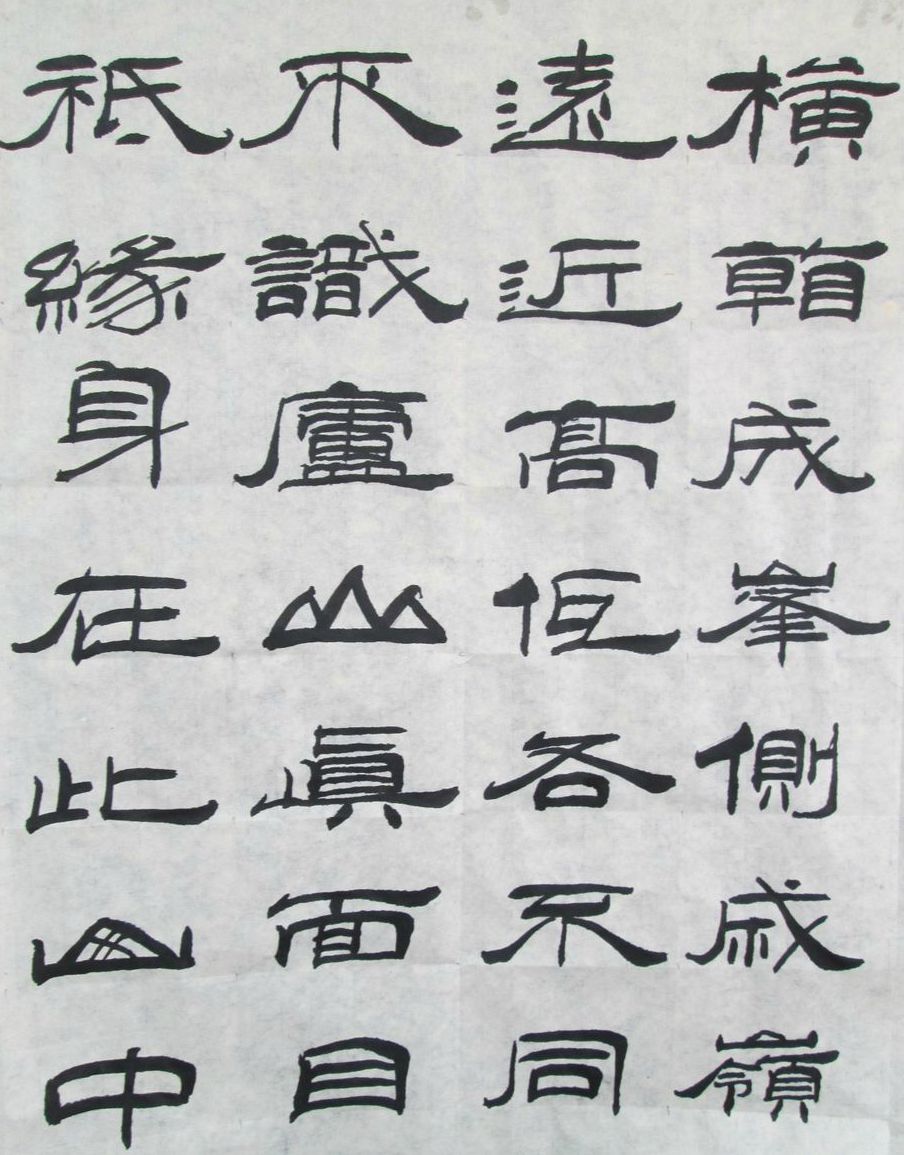 橫看成峯側成嶺
遠近髙低各不同
不識廬山真面目
衹緣身在此山中